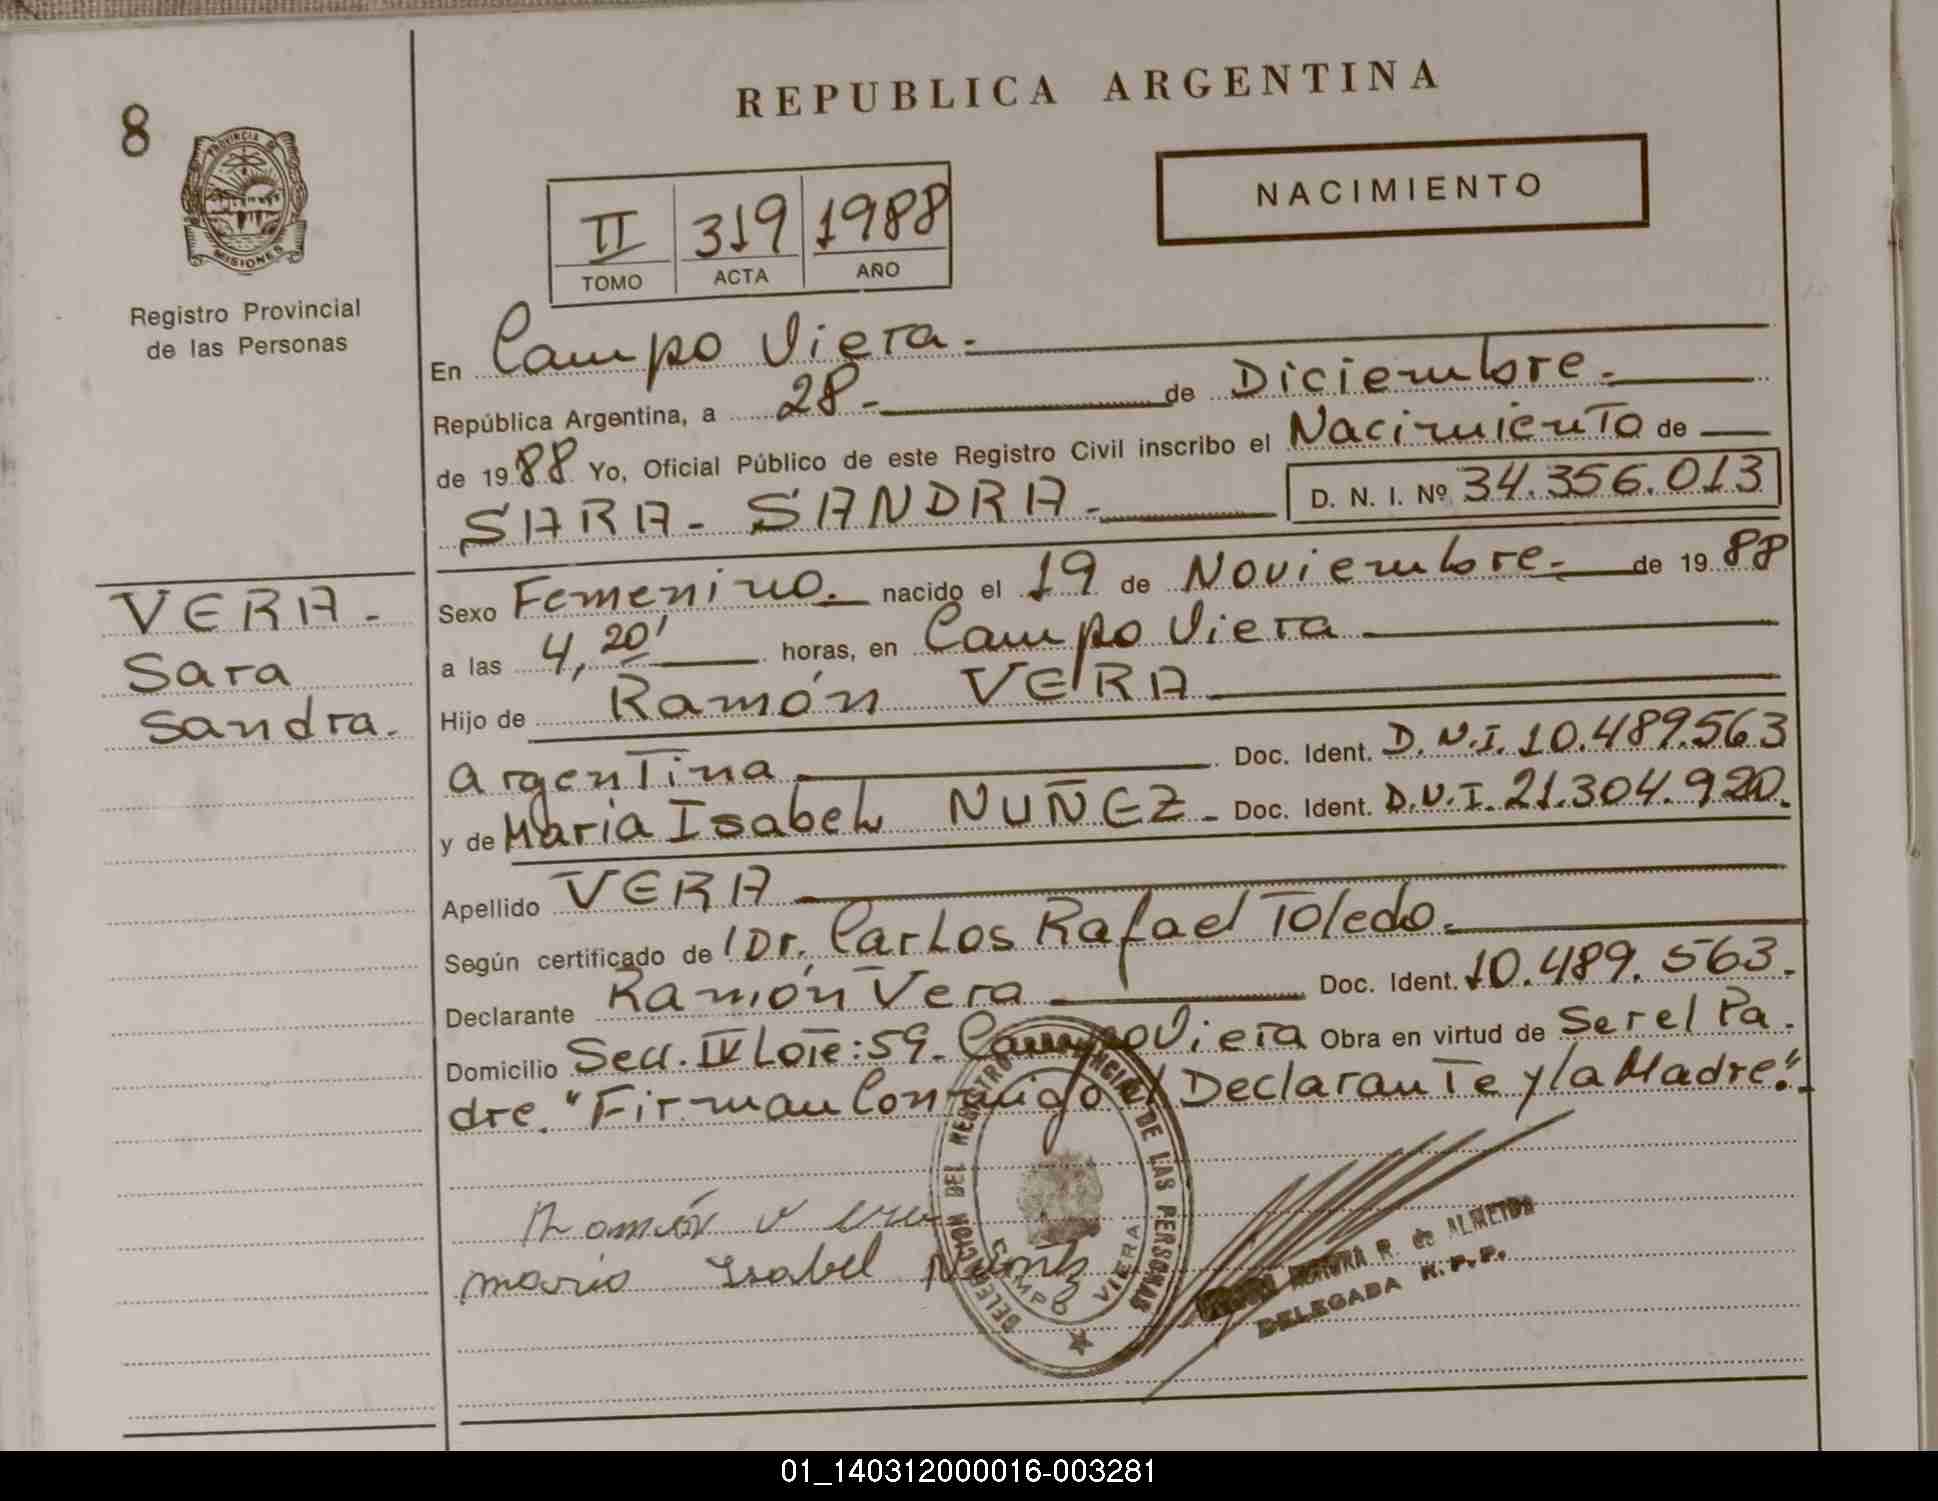 8
PROVINCIA DE
MISIONES
Registro Provincial
de las Personas
VERA -
Sara
Sandra.
REPUBLICA ARGENTINA
NACIMIENTO
II 319 1988
TOMO ACTA AÑO
En Campo Viera.
República Argentina, a 28 - de Diciembre.
de 1988 Yo, Oficial Público de este Registro Civil inscribo el Nacimiento de
SARA - SANDRA - D. N. I. Nº 34.356.013
Sexo Femenino. nacido el 19 de Noviembre. de 1988
a las 4,20' horas, en Campo Viera
Hijo de Ramón VERA
argentina Doc. Ident. D.N.I. 10.489.563
y de María Isabel NUÑEZ - Doc. Ident. D.N.I. 21.304.920.
Apellido VERA
Según certificado de Dr. Carlos Rafael Toledo.
Declarante Ramón Vera Doc. Ident. 10.489.563.
Domicilio Secc. IV Lote: 59. Campo Viera Obra en virtud de Ser el Pa-
dre. "Firman Conmigo el Declarante y la Madre".
Ramón Vera
maria Isabel Nuñez
DELEGACION DEL REGISTRO PROVINCIAL DE LAS PERSONAS
CAMPO VIERA
R. de ALMEIDA
DELEGADA R.P.P.
01_140312000016-003281